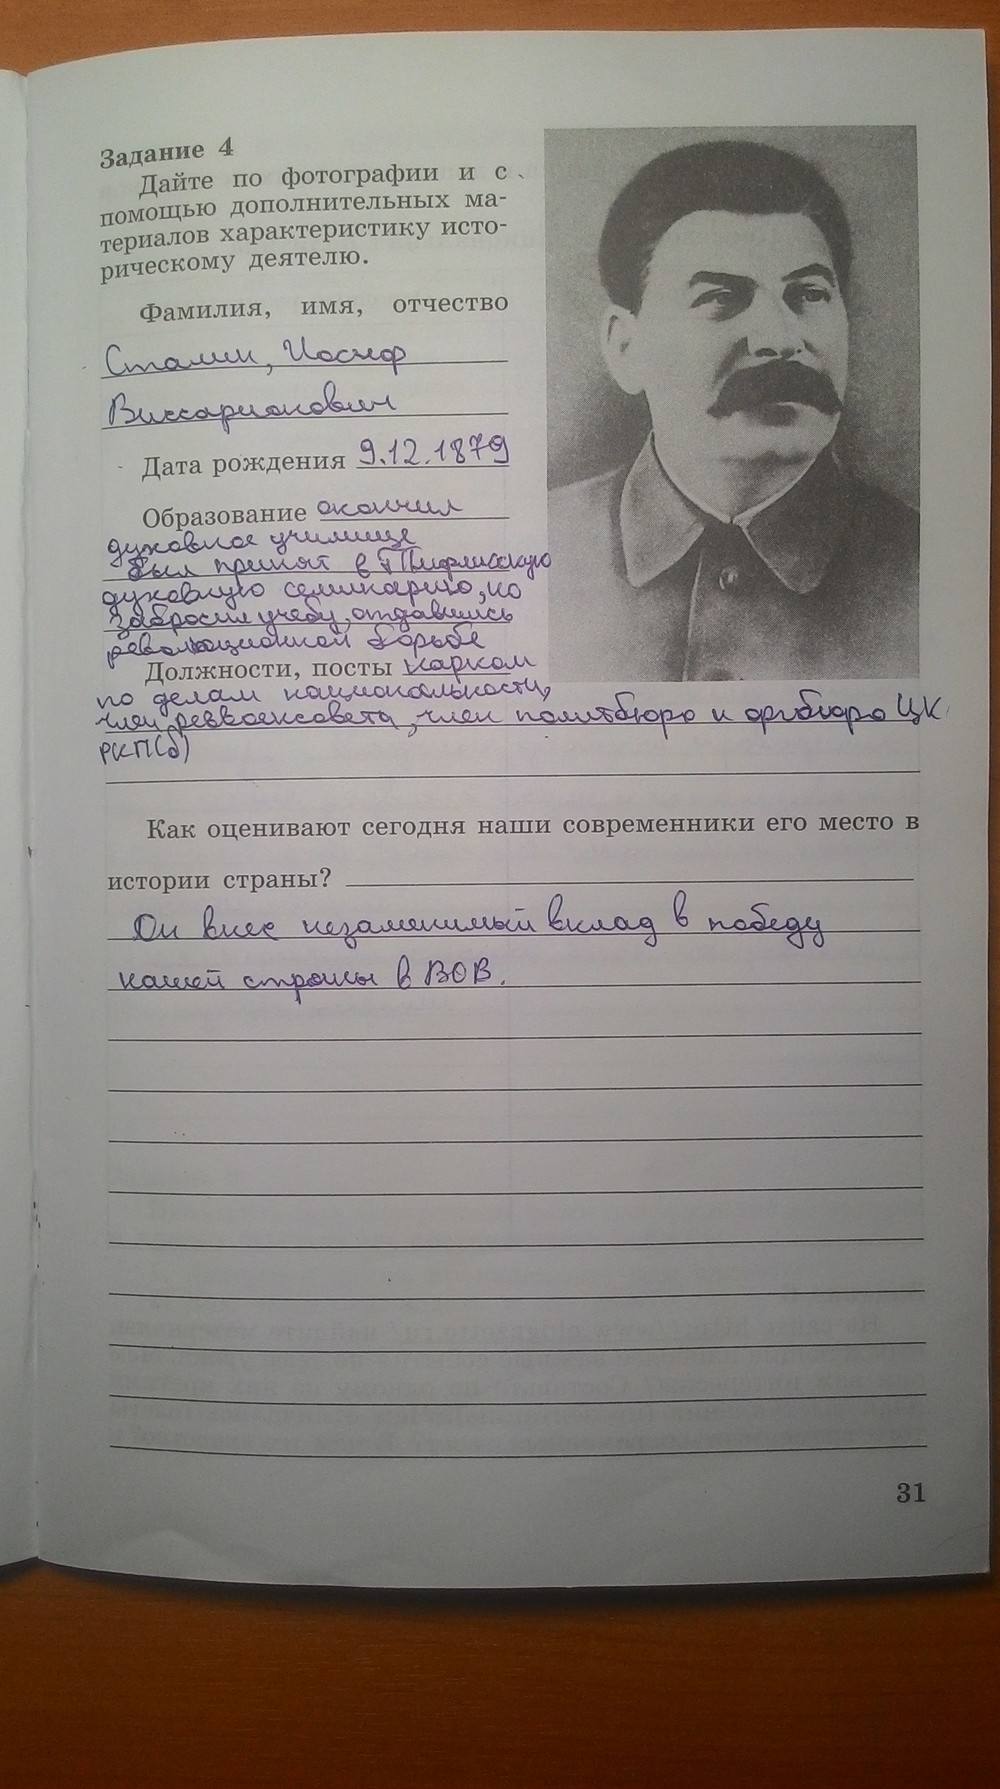 Задание 4
Дайте по фотографии и с
помощью дополнительных ма-
териалов характеристику исто-
рическому деятелю.
Фамилия, имя, отчество
Сталин, Иосиф
Виссарионович
Дата рождения 9.12.1879
Образование окончил
духовное училище
был принят в Тифлисскую
духовную семинарию, но
забросил учебу, отдавшись
революционной борьбе
Должности, посты нарком
по делам национальности,
член реввоенсовета, член политбюро и оргбюро ЦК
РКП(б)
Как оценивают сегодня наши современники его место в
истории страны?
Он внес незаменимый вклад в победу
нашей страны в ВОВ.
31